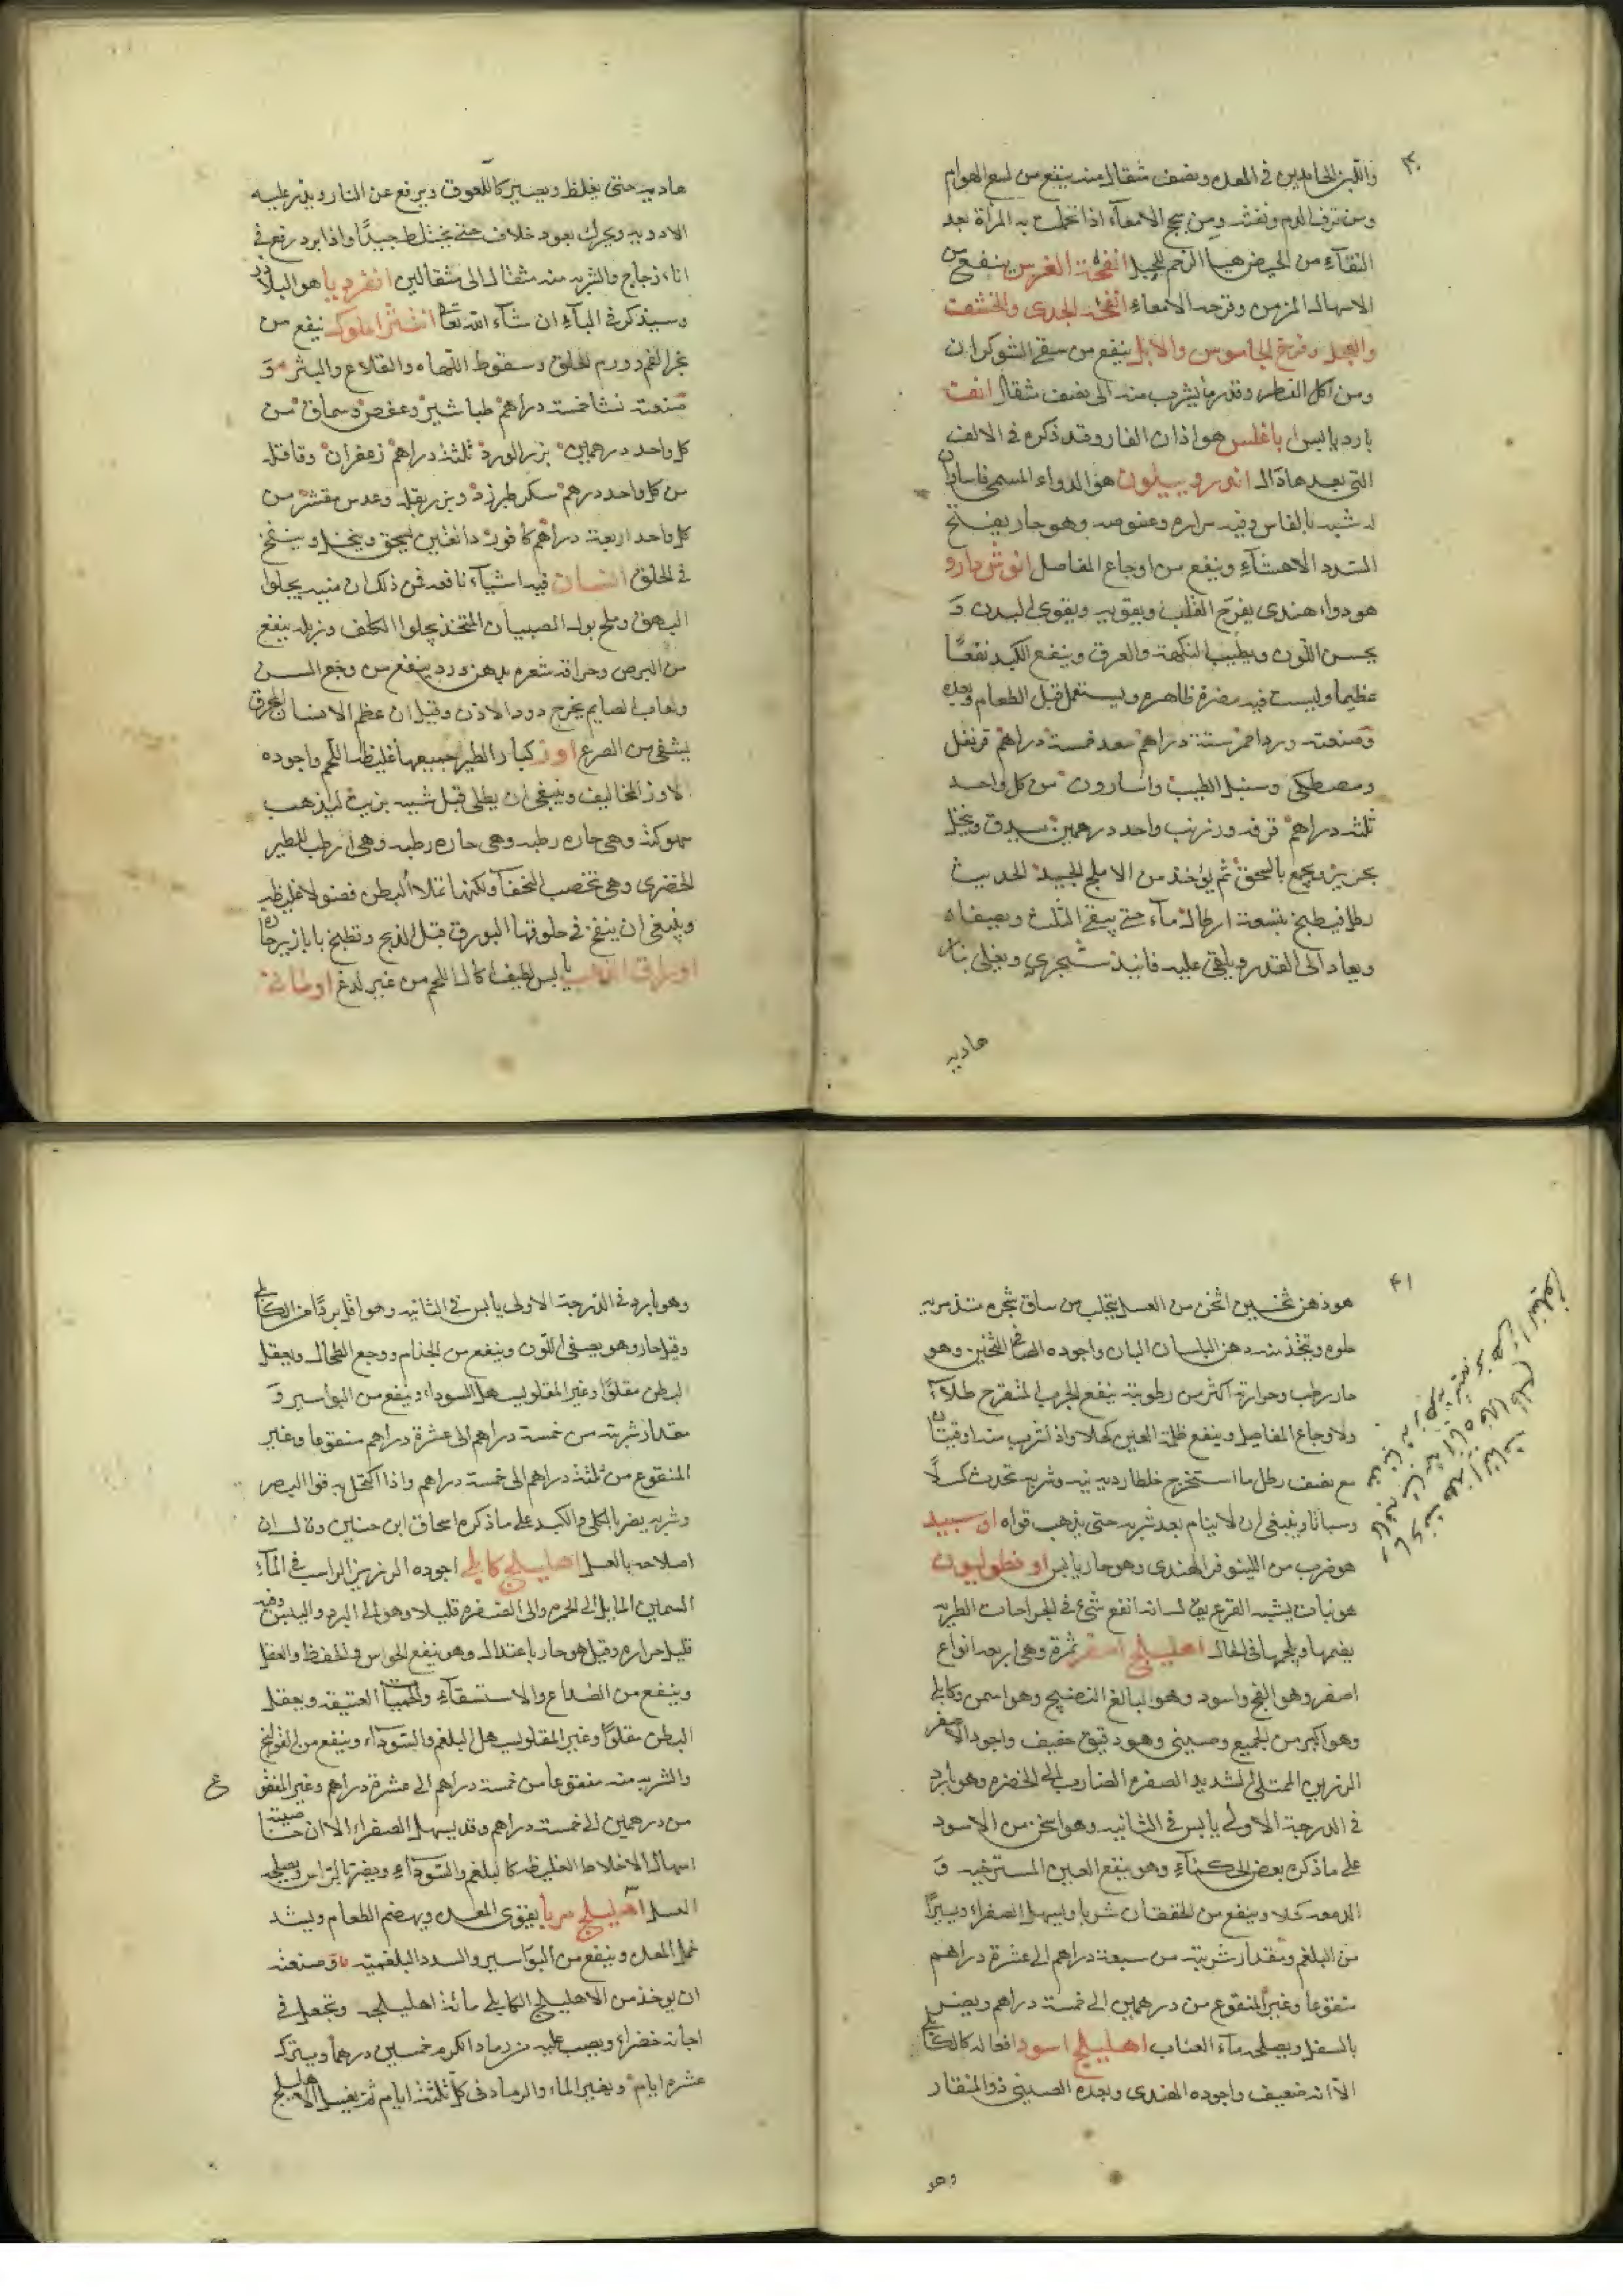 واللبن الجامدين في المعدة ونصف مثقال منه ينفع من لسع الهوام
ومن نزف الدم ونفثه ومن سحج الامعآء اذا تحملت به المرأة بعد
النقآء من الحيض هيا الرحم للحبل انفحة الفرس ينفع من
الاسهال المزمن وقرحة الامعاء انفحة الجدى والخشف
والعجل وفرخ الجاموس والابل ينفع من سقى الشوكران
ومن اكل الفطر وقدر ما يشرب منه الى نصف مثقال
بارد يابس هو اذان الفار وقد ذكره في الالف
التى بعدها ذال هو الدواء المسمى
له شبيه بالفاس وفيه مراره وعفوصه وهو حار يفتح
السدد الاحشآء وينفع من اوجاع المفاصل انوش دارو
هو دواء هندى يفرح القلب ويقويه ويقوى البدن و
يحسن اللون ويطيب النكهة والعرق وينفع الكبد نفعًا
عظيما وليست فيه مضرة ظاهره ويستعمل قبل الطعام وبعده
وصنعته ورد احمر ستة دراهم سعد خمسة دراهم قرنفل
ومصطكى وسنبل الطيب واسارون من كل واحد
ثلثه دراهم قرفه وزرنب واحد درهمين يدق وينخل
بحريز ويجمع بالسحق ثم يؤخذ من الاملج الجيد الحديث
رطل فيطبخ بتسعة ارطال مآء حتى يبقى الثلث ويصفاه
ويعاد الى القدر ويلقى عليه فانيذ سنجرى ويغلى بنار
هاديه
هاديه حتى يغلظ ويصير كاللعوق ويرفع عن النار ويذر عليه
الادويه ويحرك بعود خلاف حتى يختلط جيدًا واذا برد رفع في
اناء زجاج والشربه منه مثقال الى مثقالين انقرديا هو البلادر
وسيذكر في البآء ان شآء الله تعالى ينفع من
بخر الفم وورم الحلق وسقوط اللهاه والقلاع والبثر و
صنعته نشا خمسة دراهم طباشير وعفص وسماق من
كل واحد درهمين بزر الورد ثلثة دراهم زعفران وقاقله
من كل واحد درهم سكر طبرزد وبزر بقله وعدس مقشر من
كل واحد اربعة دراهم كافور دانقين يسحق وينخل وينفخ
في الحلق انسان فيه اشيآء نافعه فمن ذلك ان منيه يجلوا
البهق وملح بول الصبيان المتخذ يجلوا الكلف وزبله ينفع
من البرص وحراقة شعره بدهن ورد ينفع من وجع السن
ولعاب الصايم يخرج دود الاذن وقيل ان عظم الانسان المحرق
يشفى من الصرع اوز كبار الطير جميعها غليظ اللحم واجوده
الاوز المخاليف وينبغى ان يطلى قبل شيه بزيت ليذهب
سهوكته وهى حاره رطبه وهى حاره رطبه وهى ارطب الطير
الحضرى وهى تخصب النحفآء ولكنها تملا البطن فضولا غليظه
وينبغى ان ينفخ في حلوقها البورق قبل الذبح وتطبخ بابازيرحاره
يابس لطيف اكال اللحم من غير لدغ
۴۱
هو دهن ثخين اثخن من العسل يتحلب من ساق شجره تدمريه
حلوه ويتخذ منه دهن البلسان البان واجوده الصافى الثخين وهو
حار رطب وحرارته اكثر من رطوبته ينفع الجرب المتقرح طلآء
ولاوجاع المفاصل وينفع ظلمة العين كحلا واذا شرب منه اوقيتان
مع نصف رطل مآ استخرج خلطا رديه نيه وشربه تحدث كسلًا
وسباتا وينبغى ان لا ينام بعد شربه حتى يذهب قواه اوسبيد
هو ضرب من اللينوفر الهندى وهو حار يابس اوفطوليون
هو نبات يشبه القرع يق لسانه انفع شئ في الجراحات الطريه
يضمها ويلحمها في الحال اهليلج اصفر ثمرة وهى اربعة انواع
اصفر وهو الفج واسود وهو البالغ النضيج وهو اسمن وكابلى
وهو اكبر من الجميع وصينى وهو دقيق خفيف واجود الاصفر
الرزين الممتلئ الشديد الصفره الضارب الى الخضره وهو بارد
في الدرجة الاولى يابس في الثانيه وهو اسخن من الاسود
على ما ذكره بعض الحكمآء وهو ينفع العين المسترخيه و
الدمعه كحلا وينفع من الخفقان شربا ويسهل الصفراء ويسيرًا
من البلغم ومقدار شربته من سبعة دراهم الى عشرة دراهم
منقوعا وغير المنقوع من درهمين الى خمسة دراهم ويضر
بالسفل ويصلحه مآء العناب اهليلج اسود افعاله كالكابلى
الا انه ضعيف واجوده الهندى وبعده الصينى ذو المنقار
وهو
وهو بارد في الدرجة الاولى يابس في الثانيه وهو اقل بردًا من الكابلى
وقيل حار وهو يصفى اللون وينفع من الجذام ووجع الطحال ويعقل
البطن مقلوًا وغير المقلو يسهل السوداء وينفع من البواسير و
مقدار شربته من خمسة دراهم الى عشرة دراهم منقوعا وغير
المنقوع من ثلثة دراهم الى خمسة دراهم واذا اكتحل به قوا البصر
وشربه يضر بالكلى والكبد على ما ذكره اسحاق ابن حنين وقال ان
اصلاحه بالعسل اهليلج كابلى اجوده الرزين الراسب في المآء
السمين المايل الى الحمره والى الصفره قليلا وهو الى البرد واليبس وفيه
قليل حراره وقيل هو حار باعتدال وهو ينفع الحواس والحفظ والعقل
وينفع من الصداع والاستسقآء والحميات العتيقه ويعقل
البطن مقلوًا وغير المقلو يسهل البلغم والسوداء وينفع من القولنج
والشربه منه منقوعا من خمسة دراهم الى عشرة دراهم وغير المنقوع
من درهمين الى خمسة دراهم وقد يسهل الصفراء الا ان خاصيته
اسهال الاخلاط الغليظه كالبلغم والسودآء ويضر بالراس ويصلحه
العسل اهليلج مربا يقوى المعده ويهضم الطعام ويشد
خمل المعده وينفع من البواسير والسدد البلغميه وصنعته
ان يوخذ من الاهليلج الكابلى مائة اهليلجه وتجعل في
اجانه خضراء ويصب عليه من رماد الكرم خمسين درهما ويترك
عشره ايام ويغير الماء والرماد في كل ثلثة ايام ثم يغسل الاهليلج